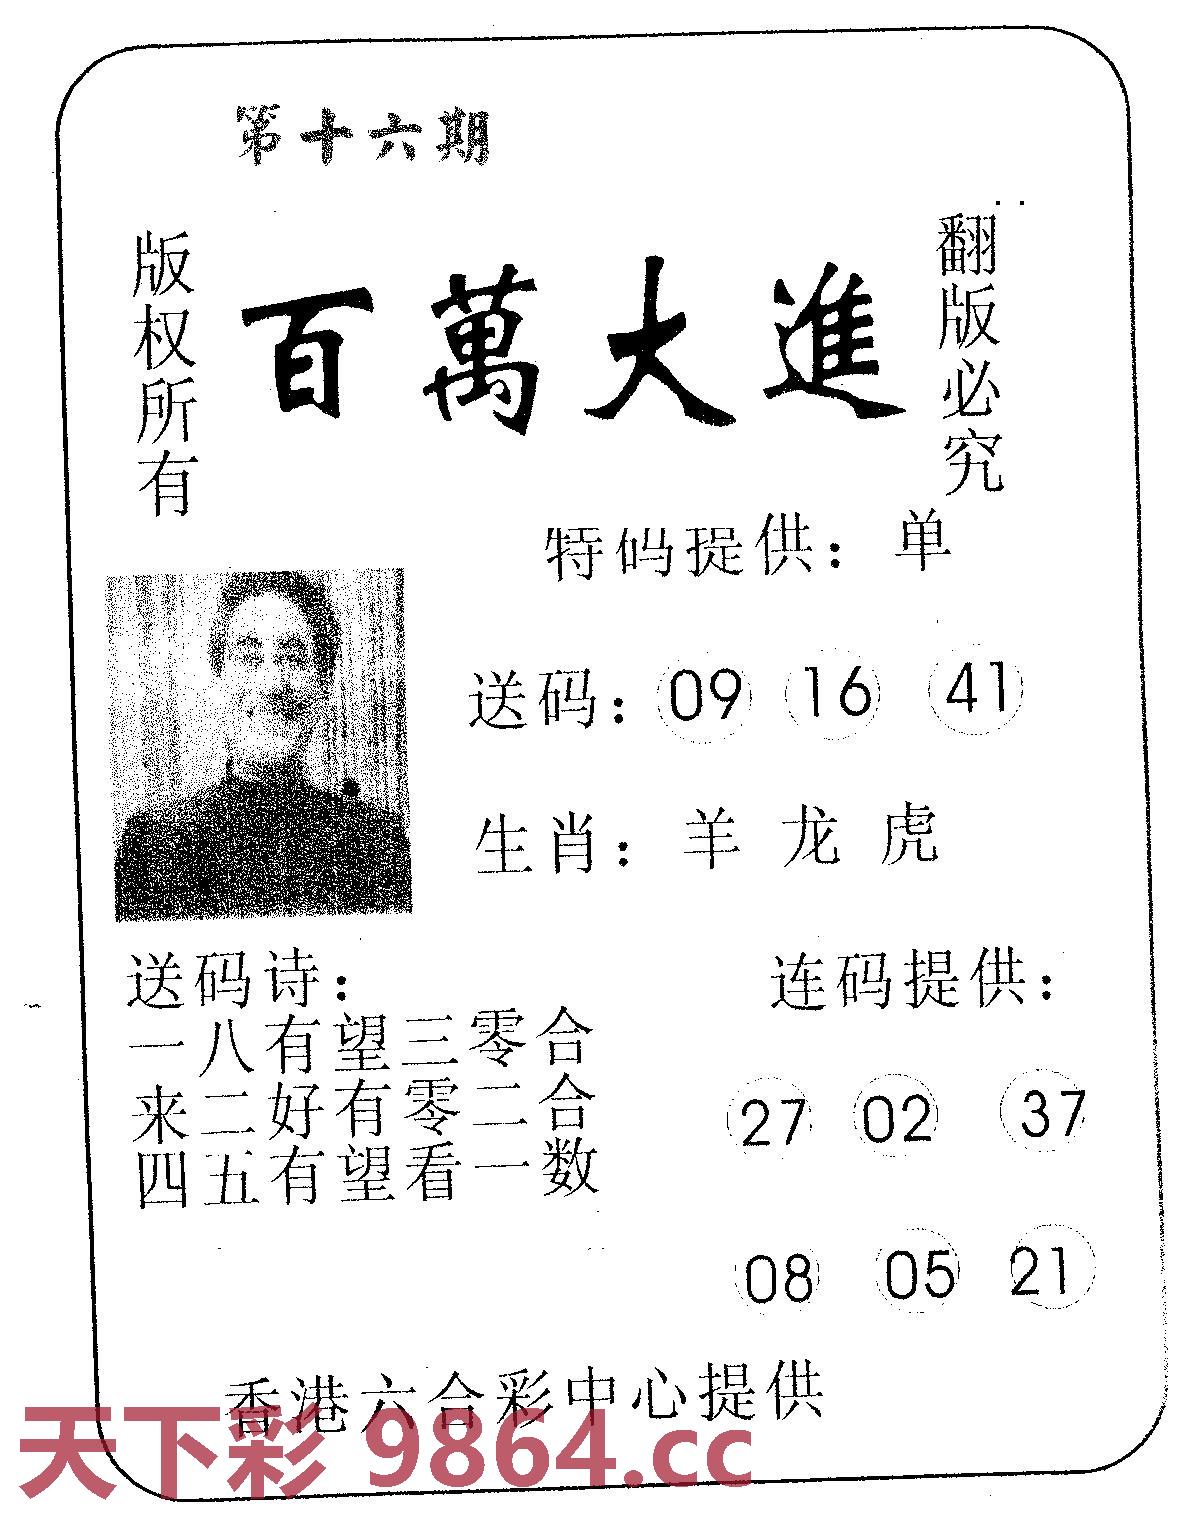 第十六期
版权所有
百萬大進
翻版必究
特码提供：单
送码：09 16 41
生肖：羊 龙 虎
送码诗：
一八有望三零合
来二好有零二合
四五有望看一数
连码提供：
27 02 37
08 05 21
香港六合彩中心提供
天下彩 9864.cc